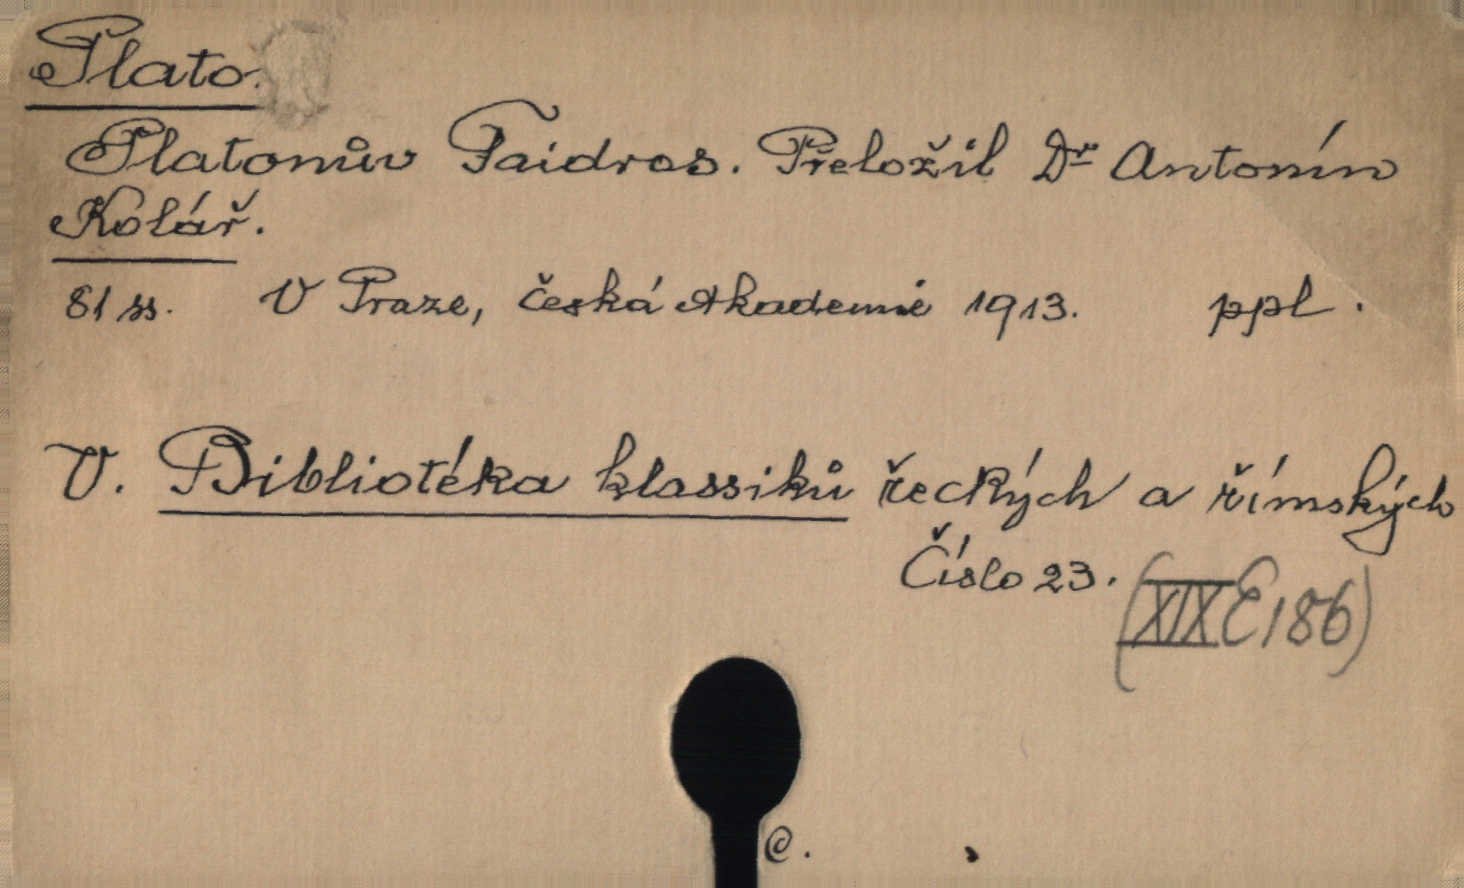 Plato.
Platonův Faidros. Přeložil Dr Antonín
Kolář.
81 ss. V Praze, Česká Akademie 1913. ppl.
V. Bibliotéka klassiků řeckých a římských
Číslo 23. (XIX E 186)
C.